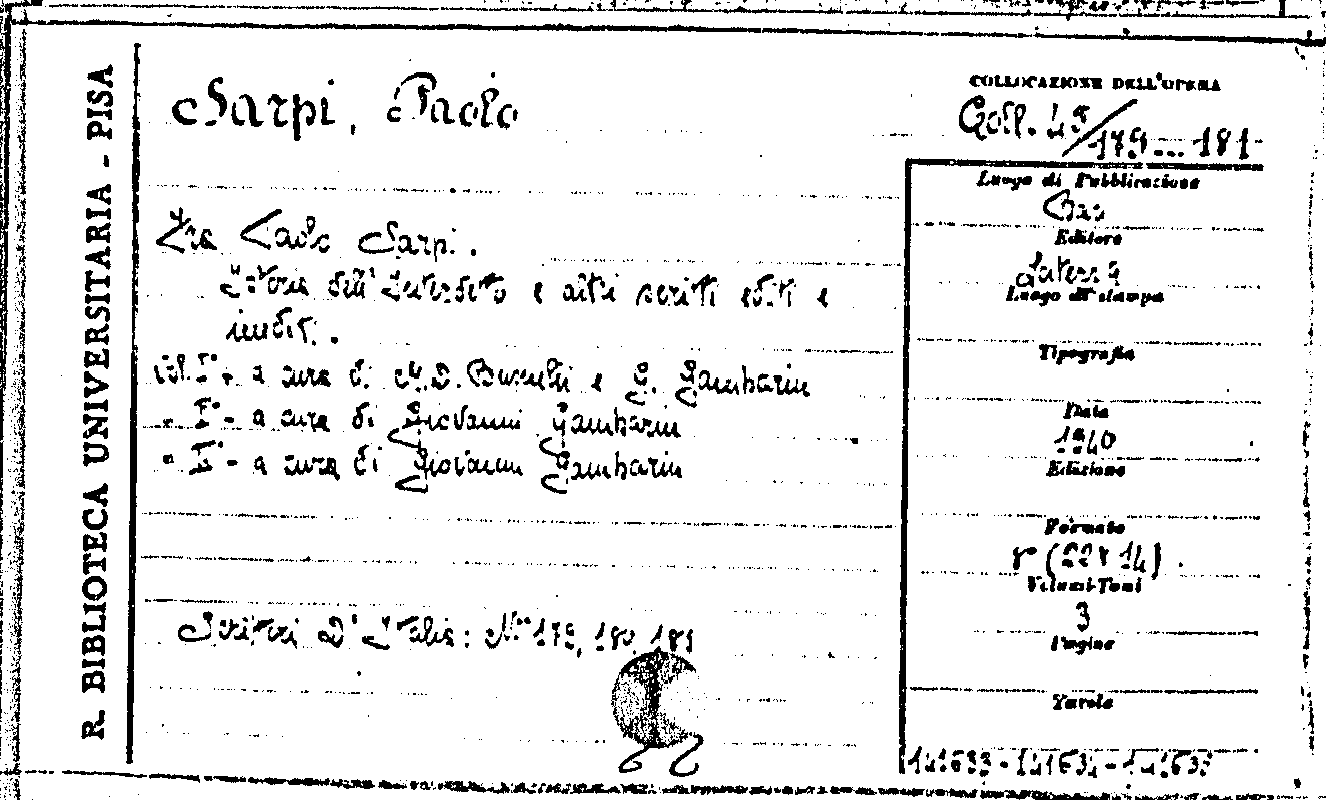 R. BIBLIOTECA UNIVERSITARIA - PISA
Sarpi, Paolo
Fra Paolo Sarpi.
Istoria dell'Interdetto e altri scritti editi e
inediti.
vol. I° - a cura di M.D. Busnelli e G. Gambarin
" - a cura di Giovanni Gambarin
" - a cura di Giovanni Gambarin
Scrittori D'Italia: N° 179, 180, 181
COLLOCAZIONE DELL'OPERA
Coll. 45/179... 181
Luogo di Pubblicazione
Bari
Editore
Laterza
Luogo di stampa
Tipografia
Data
1940
Edizione
Formato
8° (22 x 14).
Volumi-Tomi
3
Pagine
Tavole
141633 - 141634 - 141635